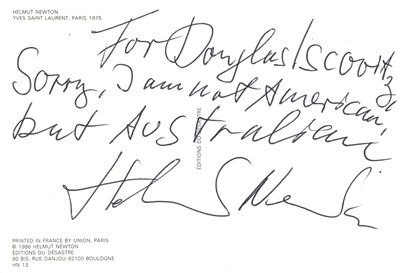 HELMUT NEWTON
YVES SAINT LAURENT, PARIS 1975
For Douglas
Sorry, I am not American,
but Australian!
Helmut Newton
ÉDITIONS DU DÉSASTRE
PRINTED IN FRANCE BY UNION, PARIS
© 1986 HELMUT NEWTON
ÉDITIONS DU DÉSASTRE
80 BIS, RUE DANJOU 92100 BOULOGNE
HN 13